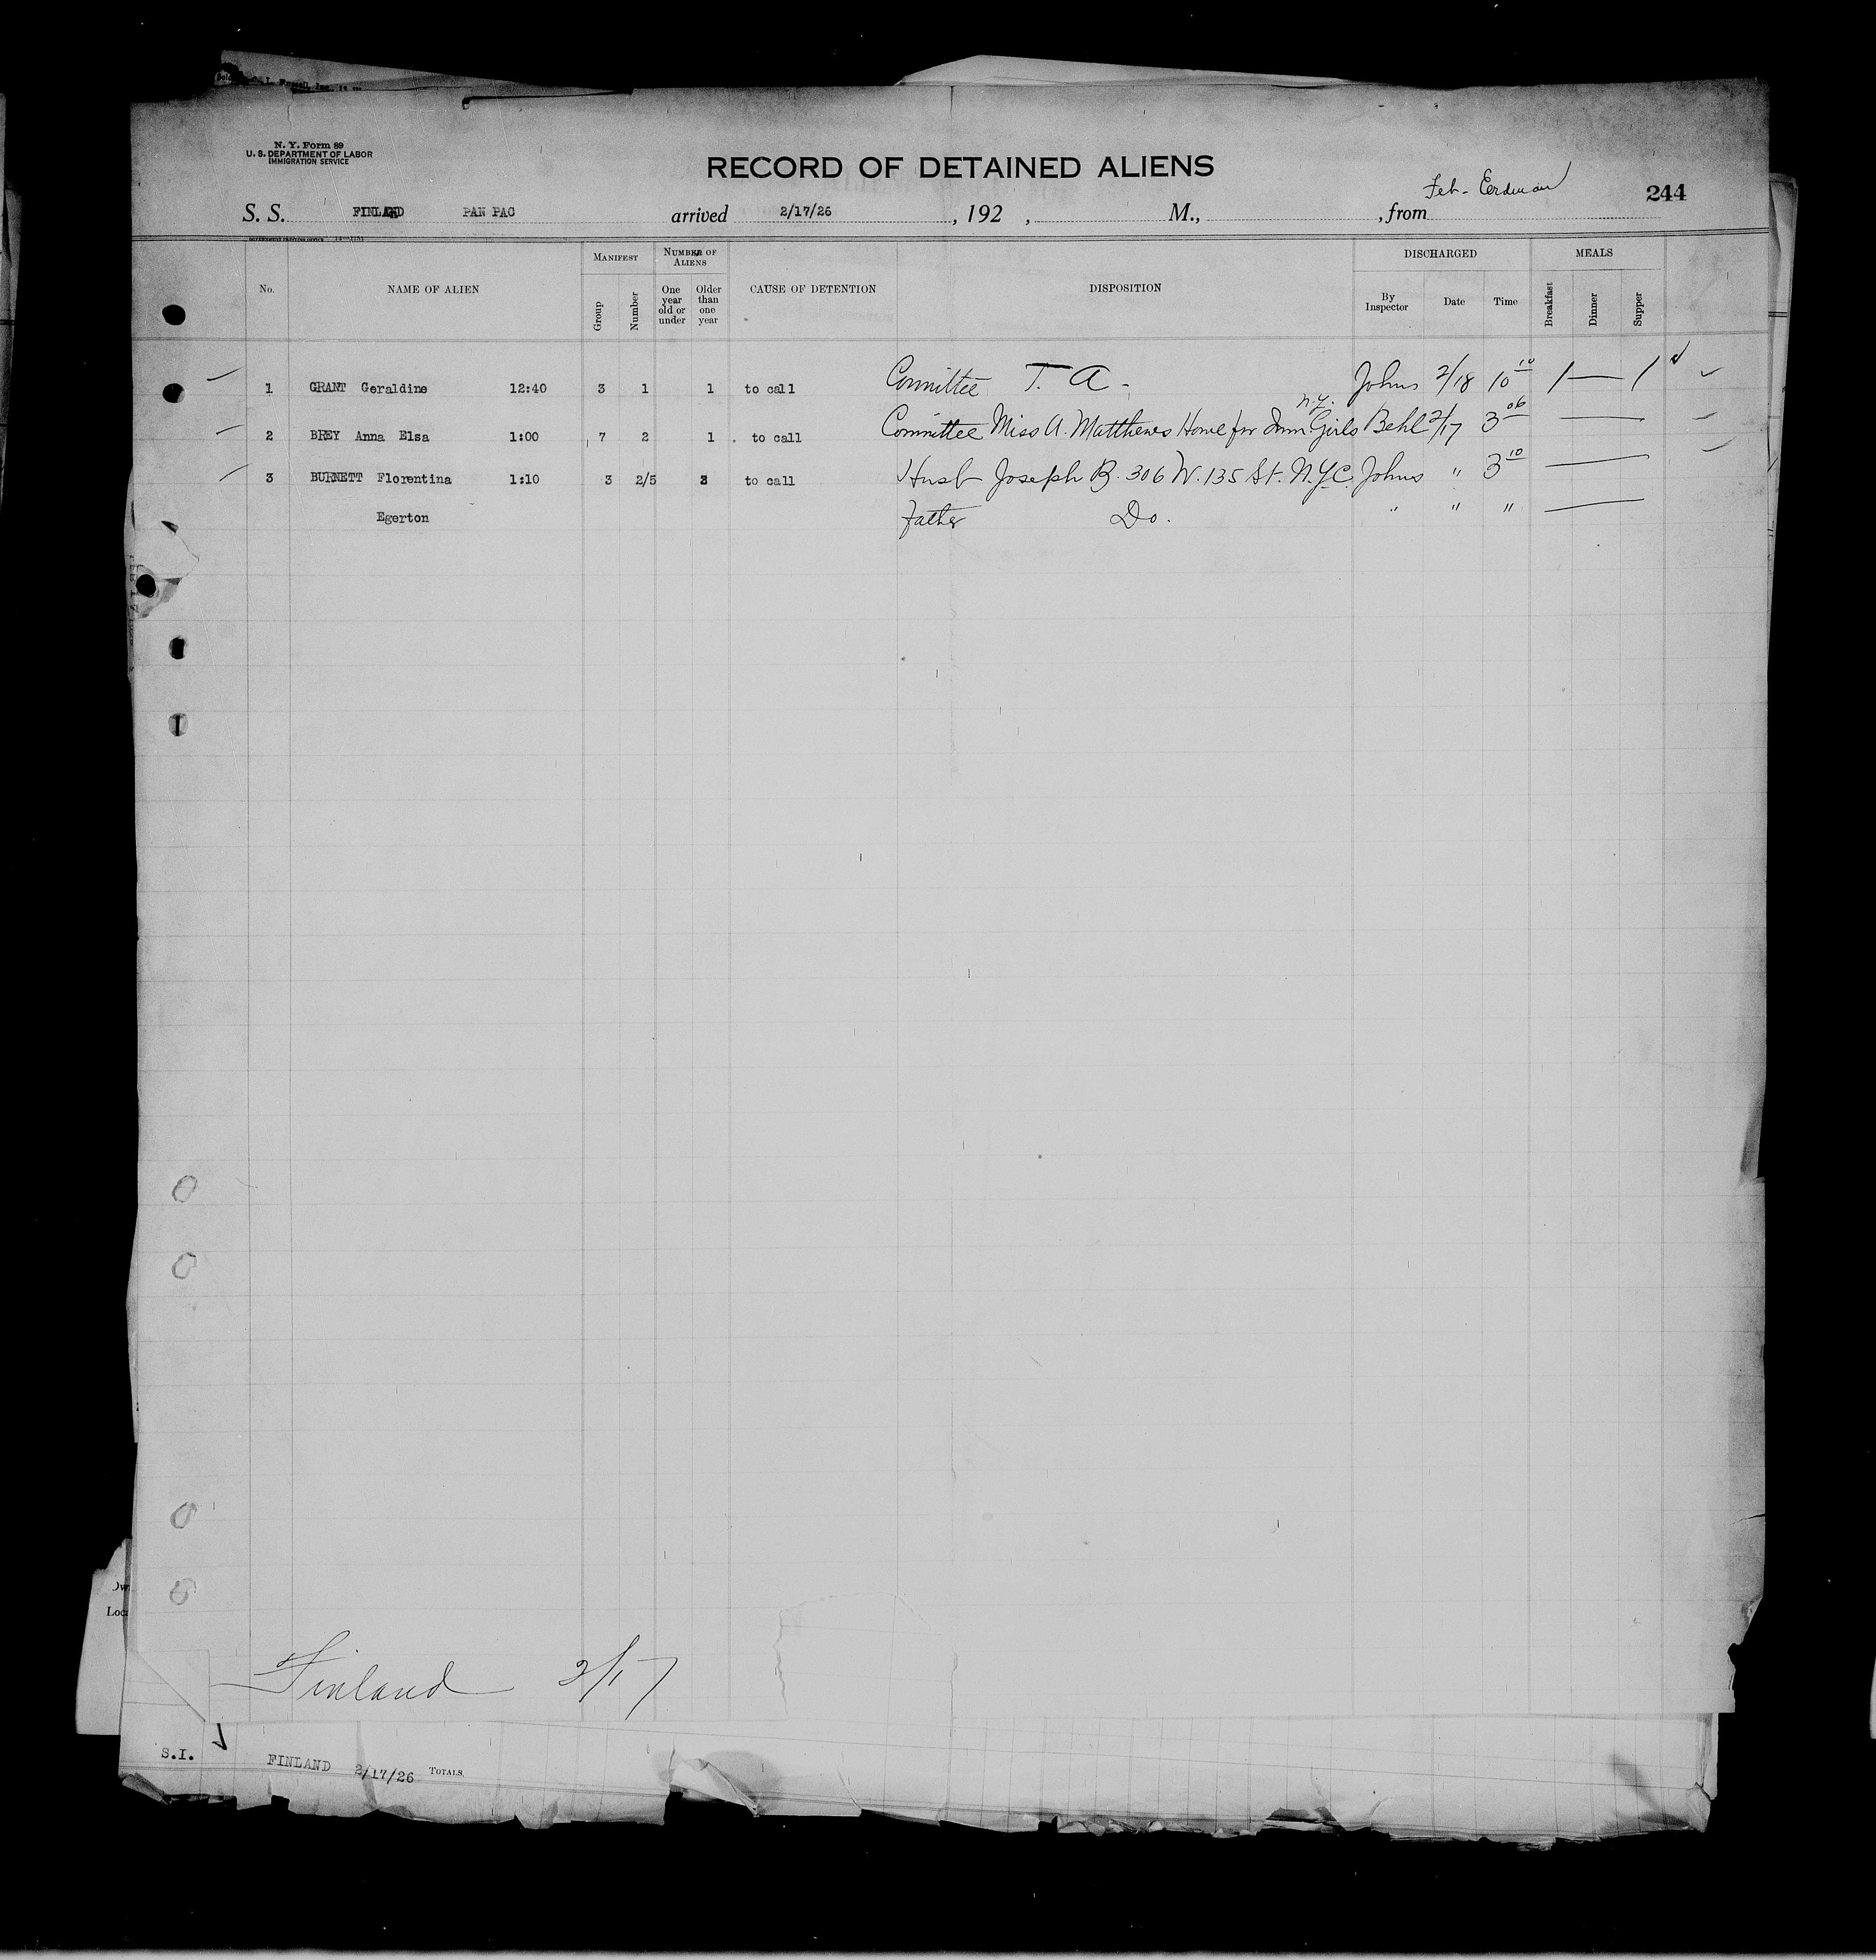 N. Y. Form 89
U. S. DEPARTMENT OF LABOR
IMMIGRATION SERVICE
RECORD OF DETAINED ALIENS
244
S. S. FINLAND PAN PAC arrived 2/17/26, 192 , M., , from
No. NAME OF ALIEN MANIFEST Group Number NUMBER OF ALIENS One year old or under Older than one year CAUSE OF DETENTION DISPOSITION DISCHARGED By Inspector Date Time MEALS Breakfast Dinner Supper
1 GRANT Geraldine 12:40 3 1 1 to call Committee T. A. Johns 2/18 10 10 1 — 1
N.Y.
2 BREY Anna Elsa 1:00 7 2 1 to call Committee Miss A. Matthews Home for Imm. Girls Behl 2/17 3 06
3 BURNETT Florentina 1:10 3 2/5 to call Husb Joseph B. 306 W. 135 St. N.Y.C. Johns " 3 10
Egerton Father Do. " " "
Finland 2/17
S.I. FINLAND 2/17/26 TOTALS